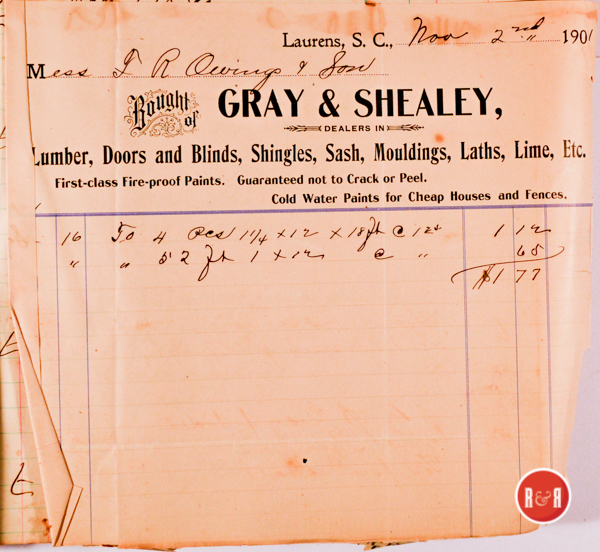 Laurens, S. C., Nov 2nd 190
Mess T R Owings & Son
Bought of GRAY & SHEALEY,
DEALERS IN
Lumber, Doors and Blinds, Shingles, Sash, Mouldings, Laths, Lime, Etc.
First-class Fire-proof Paints. Guaranteed not to Crack or Peel.
Cold Water Paints for Cheap Houses and Fences.
16 To 4 pcs 1 1/4 x 12 x 18 ft @ 1 12
" " 52 ft 1 x 12 @ " 65
$1 77
R&R